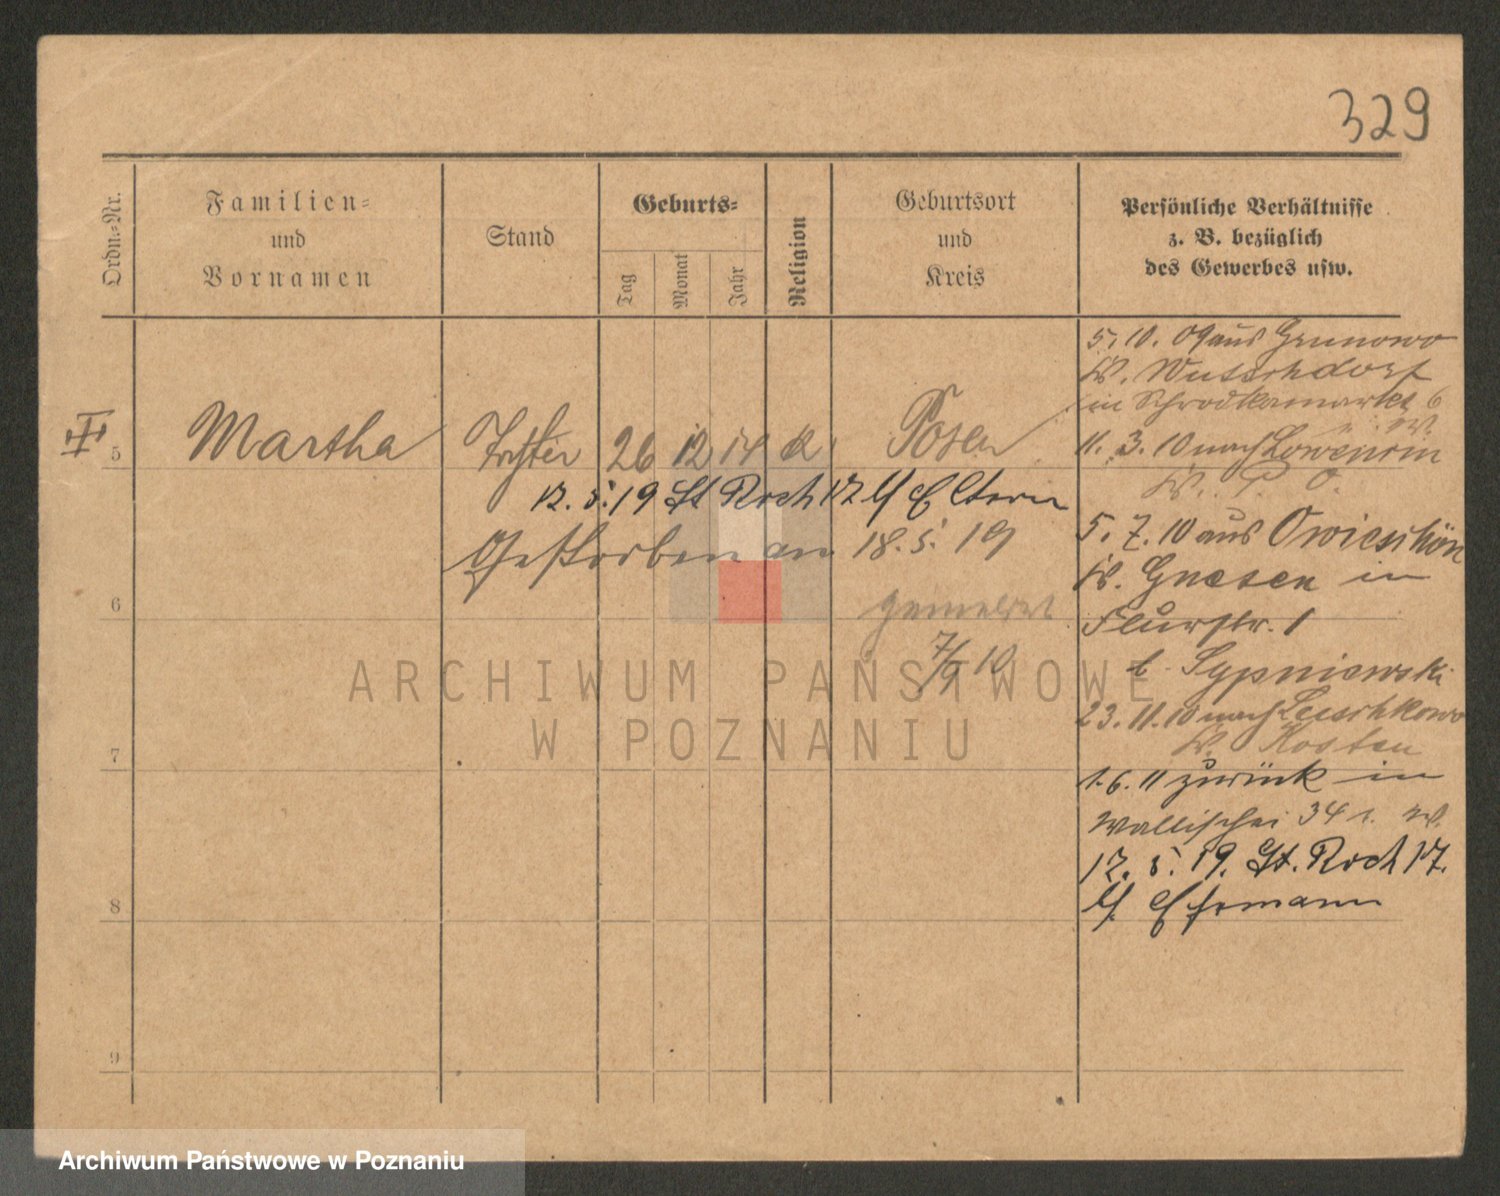 329
Ordn.-Nr.
Familien-
und
Vornamen
Stand
Geburts-
Tag
Monat
Jahr
Religion
Geburtsort
und
Kreis
Persönliche Verhältnisse
z. B. bezüglich
des Gewerbes usw.
III
5
Martha
Tochter
26
12
14
k
Posen
12. 5. 19 St Roch 17 b/ Eltern
Gestorben an 18. 5. 19
6
gemeldet
7/9 10
7
8
9
5. 10. 09 aus Grunowo
Kr.
in Schrodkamarkt 6
11. 3. 10 nach Lowencin
Kr. P. O.
5. 7. 10 aus
Kr. Gnesen in
Flurstr. 1
b. Sypniewski
23. 11. 10 nach
Kr. Kosten
1. 6. 11 zurück in
Wallischei 34
12. 5. 19. St. Roch 17.
b/
ARCHIWUM PAŃSTWOWE
W POZNANIU
Archiwum Państwowe w Poznaniu